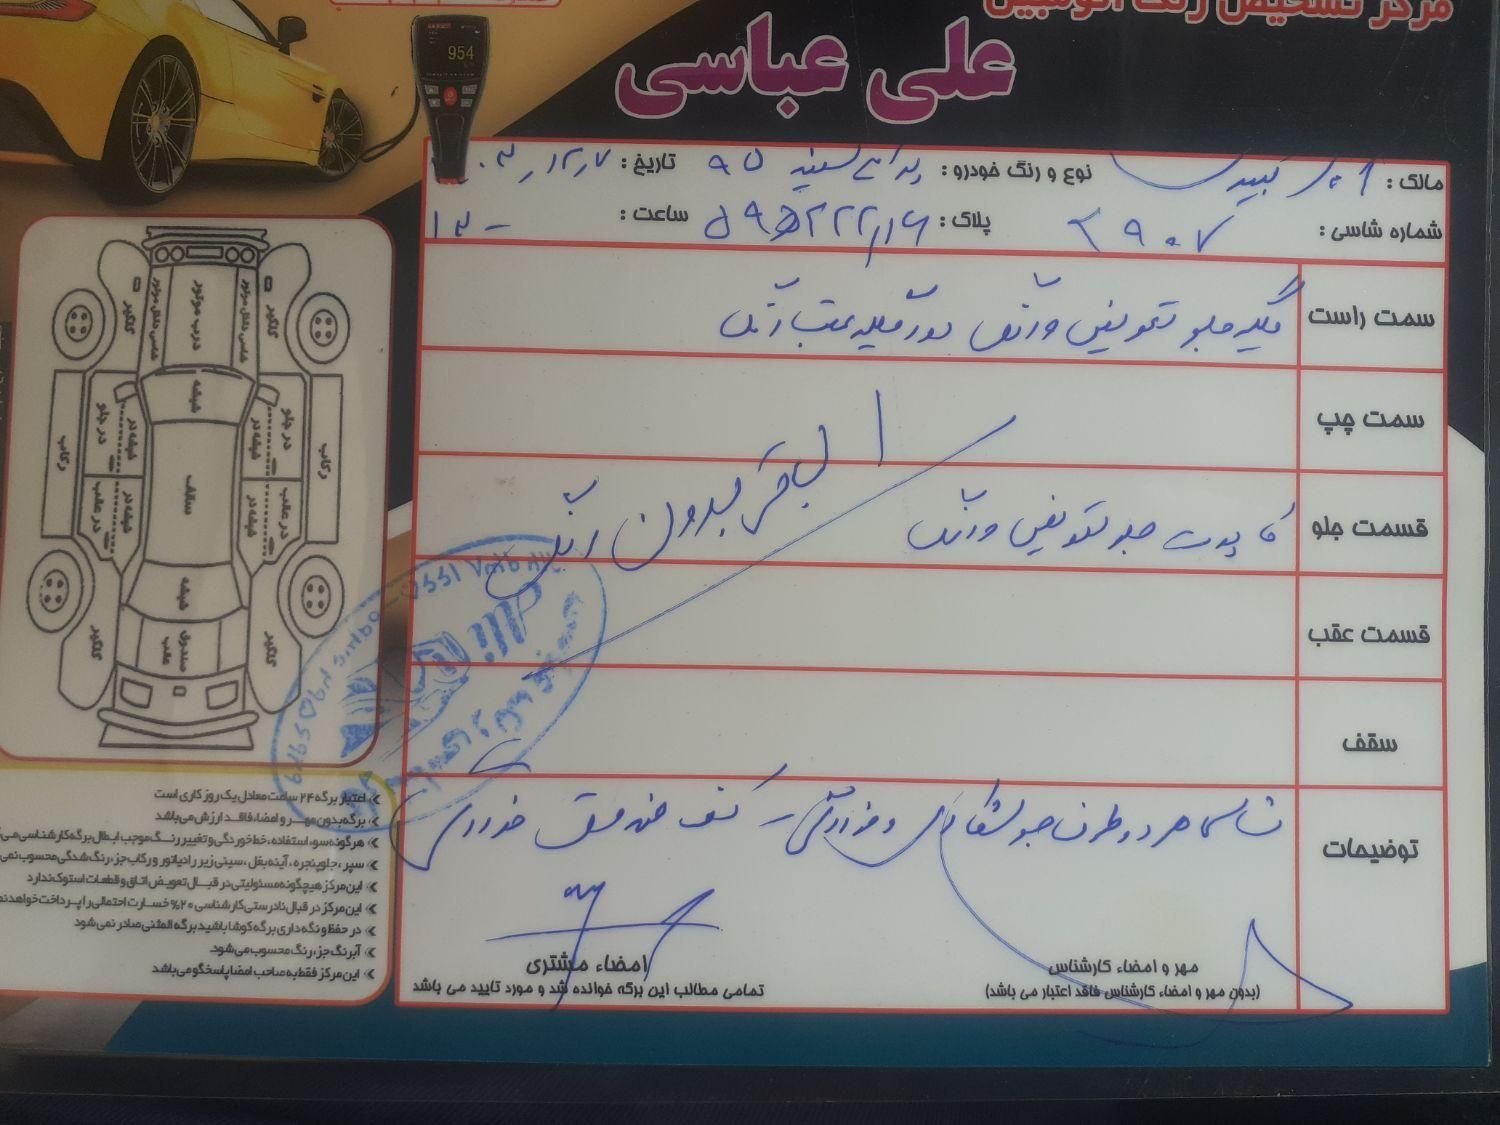 مرکز تشخیص رنگ اتومبیل
علی عباسی
954
مالک :
نوع و رنگ خودرو : پراید سفید ۹۵
تاریخ :
شماره شاسی : ۲۹۰۷
پلاک :
ساعت : ۱۳۰۰
سمت راست
گلگیر جلو تعویض و رنگ دور گلگیر عقب رنگ
سمت چپ
قسمت جلو
کاپوت جلو تعویض و رنگ
الباقی بدون رنگ
قسمت عقب
سقف
توضیحات
شاسی هر دو طرف جلو
کف صندوق خوردگی
مهر و امضاء کارشناس
(بدون مهر و امضاء کارشناس فاقد اعتبار می باشد)
امضاء مشتری
تمامی مطالب این برگه خوانده شد و مورد تایید می باشد
گلگیر
شاسی داخل موتور
درب موتور
شاسی داخل موتور
گلگیر
شیشه
رکاب
در جلو
شیشه در
سقف
شیشه در
در جلو
رکاب
در عقب
شیشه در
شیشه در
در عقب
شیشه
گلگیر
صندوق عقب
گلگیر
اعتبار برگه ۲۴ ساعت معادل یک روز کاری است
برگه بدون مهر و امضاء، فاقد ارزش می‌باشد
هرگونه سوء استفاده، خط خوردگی و تغییر رنگ موجب ابطال برگه کارشناسی
سپر ، جلوپنجره ، آینه بغل ، سینی زیر رادیاتور و رکاب جزء رنگ شدگی محسوب
این مرکز هیچگونه مسئولیتی در قبال تعویض اتاق و قطعات استوک ندارد
این مرکز در قبال نادرستی کارشناسی ۲۰% خسارت احتمالی را پرداخت خواهد
در حفظ و نگه داری برگه کوشا باشید برگه المثنی صادر نمی شود
آبرنگ جزء رنگ محسوب می شود.
این مرکز فقط به صاحب امضا پاسخگو می باشد